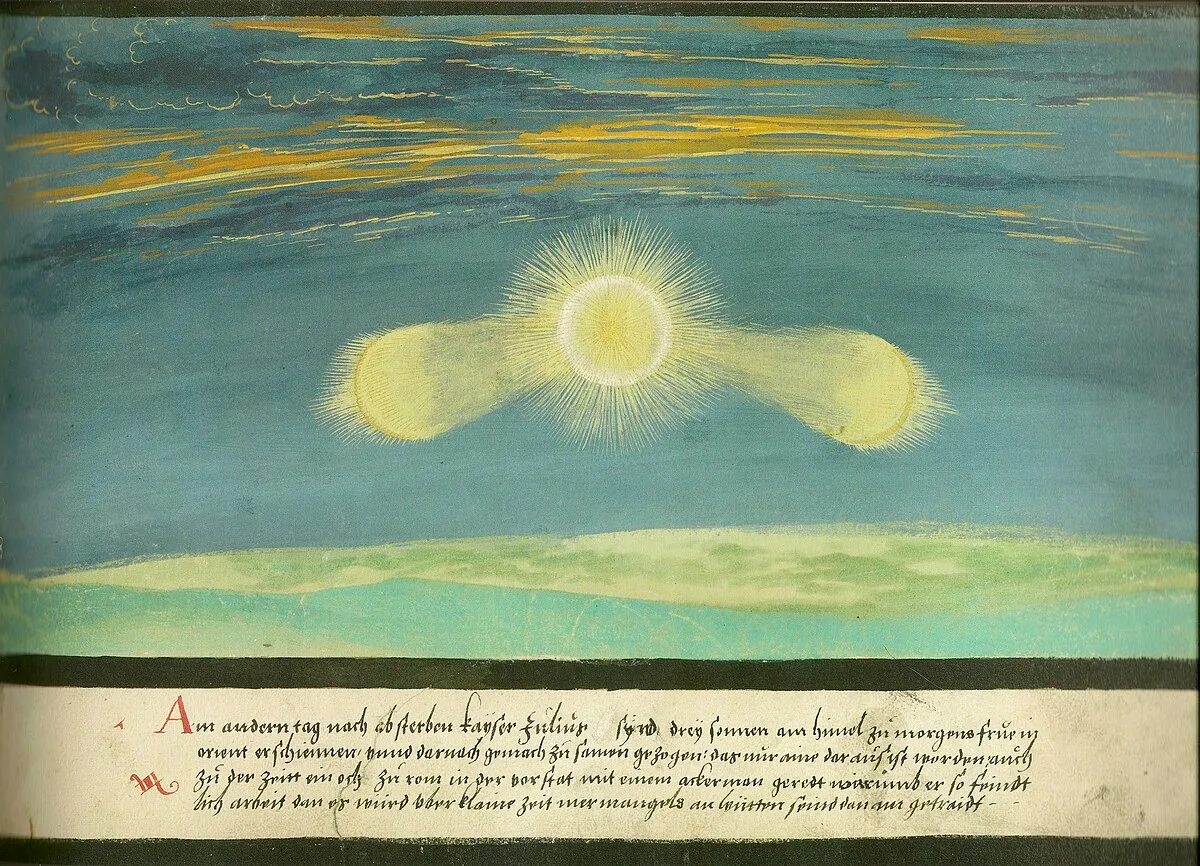 Am andern tag nach absterben kayser Julius synd drey sonnen am himel zu morgens frue in
orient erschiennen, vnnd darnach gemach zu samen gezogen, das nur aine daraus ist worden, auch
zu der zeitt ein ochs zu rom in der vorstat mit einem ackerman geredt warumb er so feindt
lich arbeit dan es wurd vber klaine zeit mer mangels an leütten seind dan am getraidt